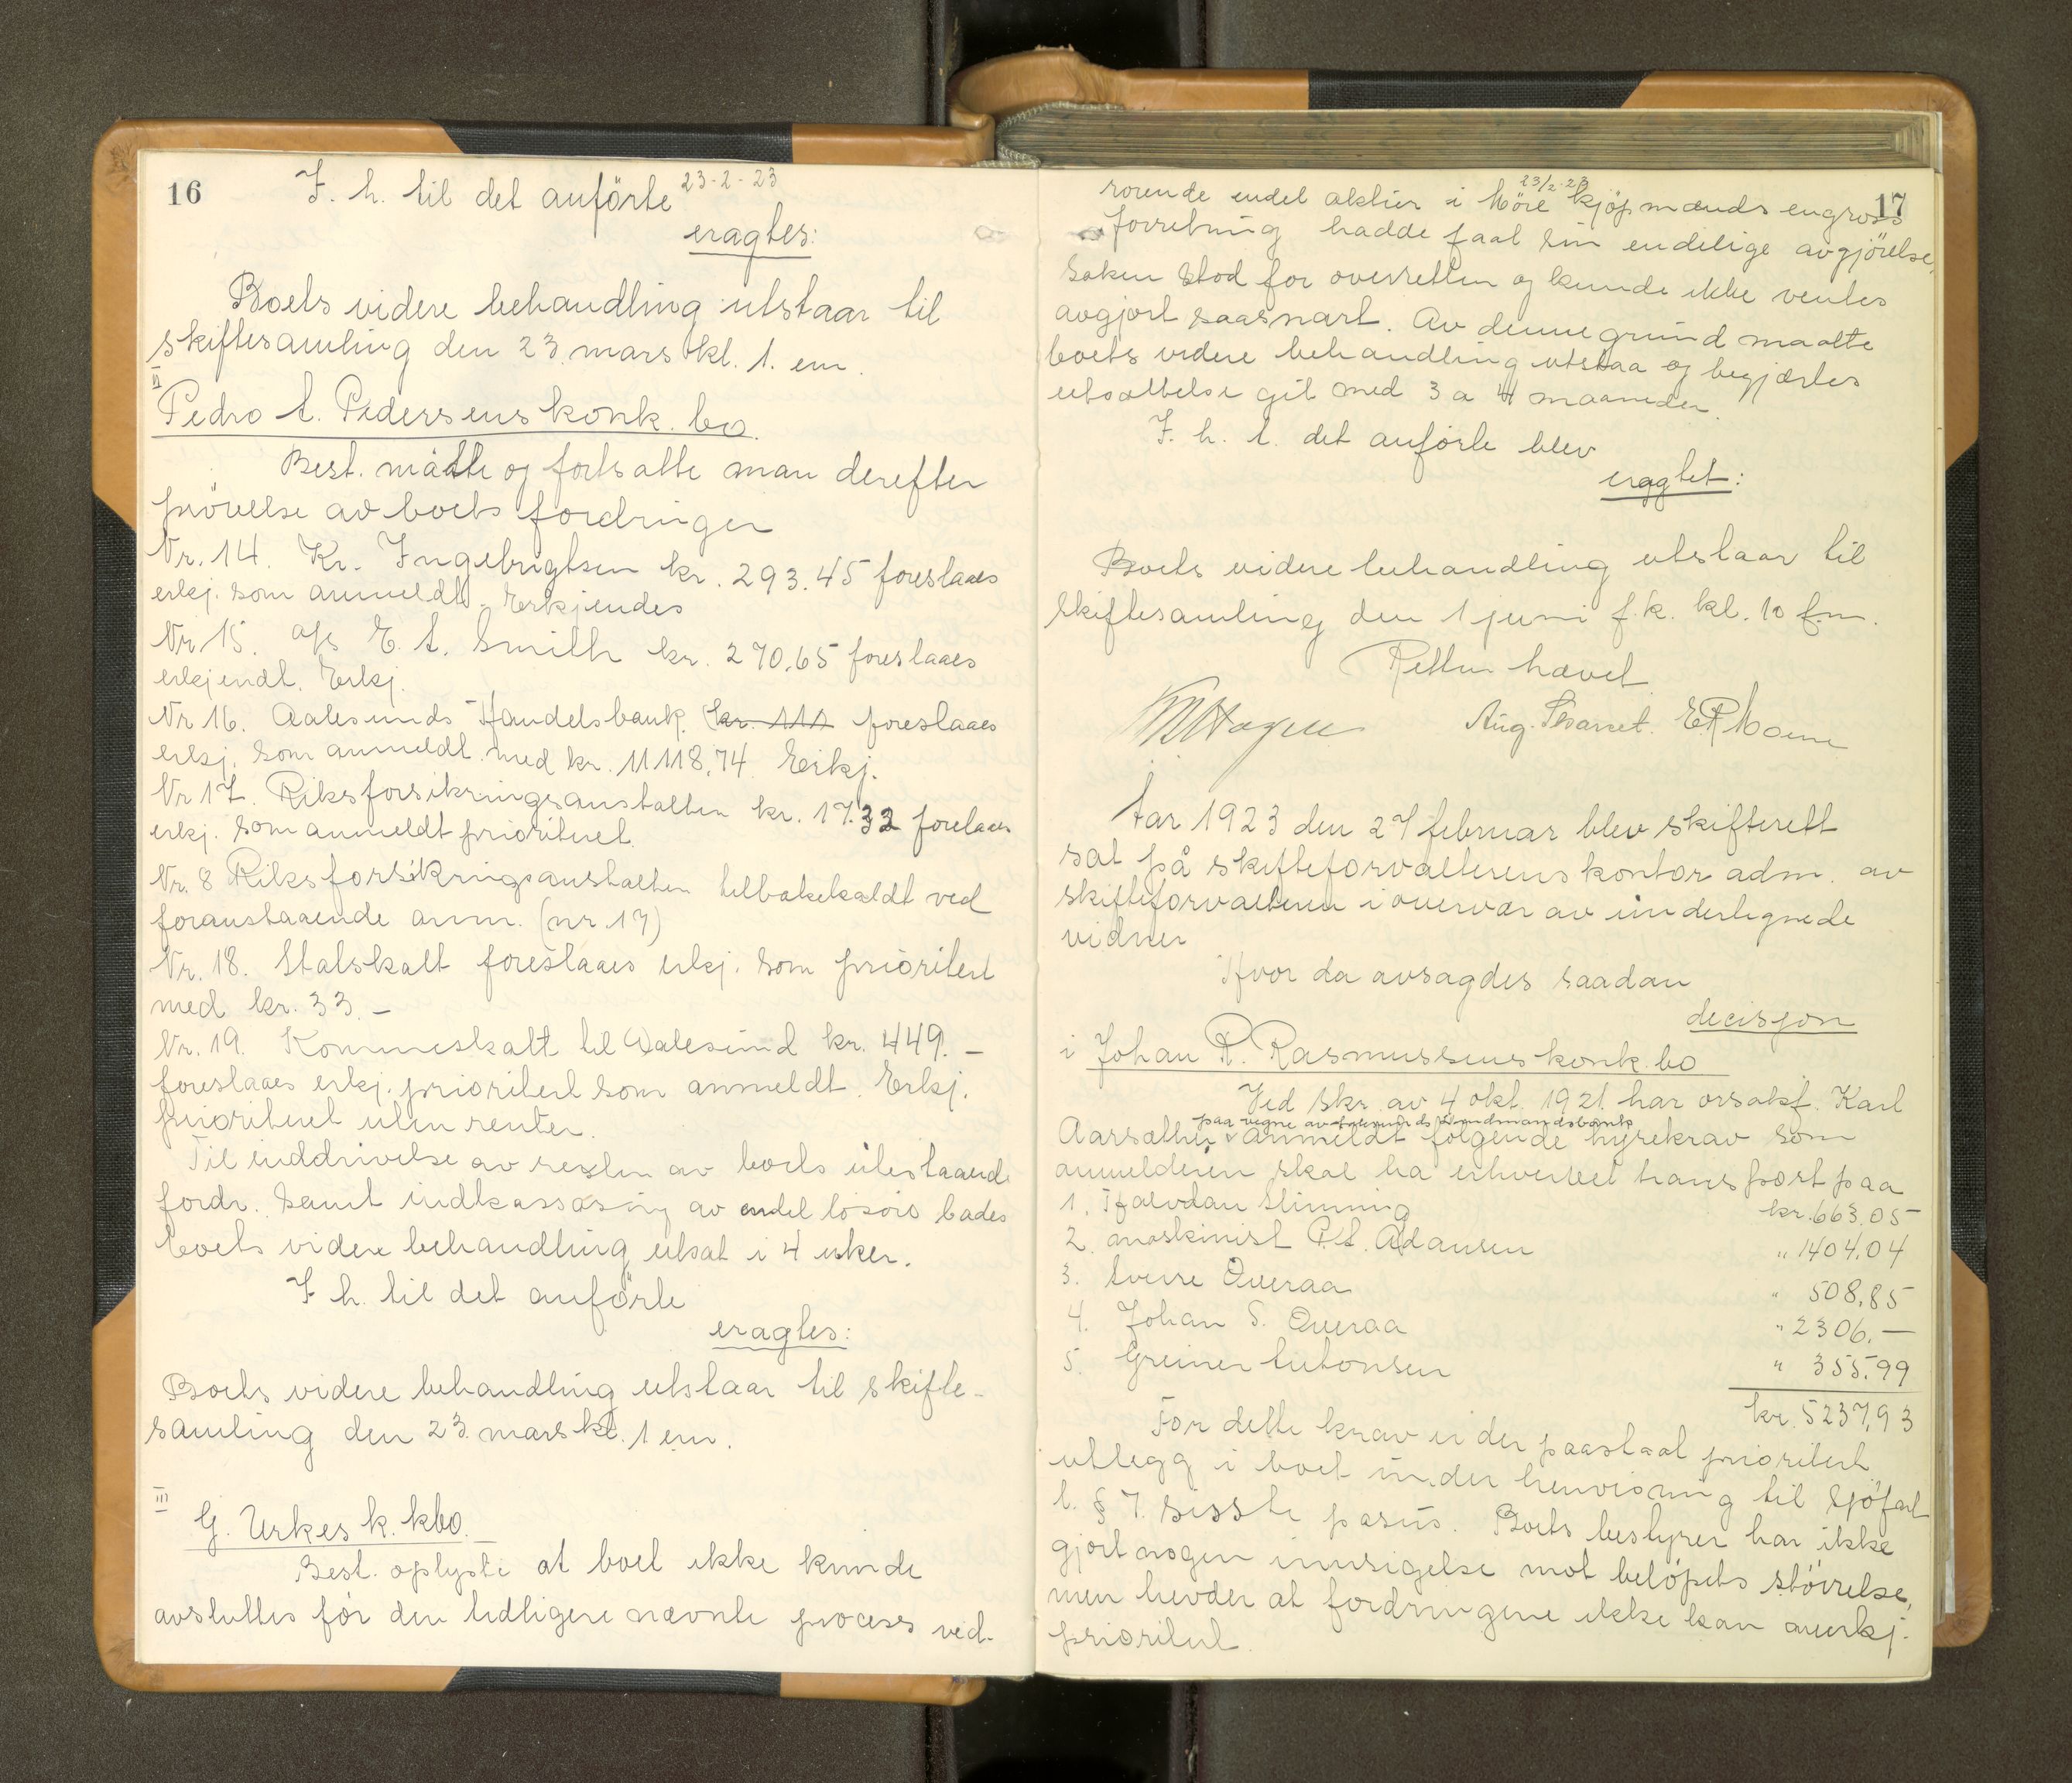 16
23-2-23
I. h. til det anförte
eragtes:
Boets videre behandling utstaar til
skiftesamling den 23. mars kl. 1. em.
II
Pedro A. Pedersens konk. bo.
Best. mätte og fortsatte man derefter
prövelse av boets fordringer
Nr. 14. Kr. Ingebrigtsen kr. 293.45 foreslaaes
erkj. som anmeldt. Erkjendes
Nr 15. a/s E. A. Smith kr. 270.65 foreslaaes
erkjendt. Erkj.
Nr 16. Aalesunds Handelsbank. kr. 111 foreslaaes
erkj. som anmeldt med kr. 11118,74. Erkj.
Nr 17. Riksforsikringsanstalten kr. 17.32 forelaaes
erkj. som anmeldt prioriteret.
Nr. 8 Riksforsikringsanstalten tilbakekaldt ved
foranstaaende anm. (nr. 17)
Nr. 18. Statskatt foreslaaes erkj. som prioritert
med kr. 33.-
Nr. 19. Kommuneskatt til Aalesund kr. 449.-
foreslaaes erkj. prioritert som anmeldt. Erkj.
prioriteret uten renter.
Til inddrivelse av resten av boets utestaaende
fordr. samt indkassering av endel lösöre bades
boets videre behandling utsat i 4 uker.
I h. til det anförte
eragtes:
Boets videre behandling utstaar til skifte-
samling den 23. mars kl. 1 em.
III
G. Urkes k. kbo.
Best. oplyste at boet ikke kunde
avsluttes før den tidligere nævnte process ved-
17
23/2-23
rörende endel aktier i Möre kjöpmænds engross
forretning hadde faat sin endelige avgjörelse,
Saken stod for overretten og kunde ikke ventes
avgjort saasnart. Av denne grund maatte
boets videre behandling utstaa og begjærtes
utsættelse git med 3 a 4 maaneder.
I. h. t. det anförte blev
eragtet:
Boets videre behandling utstaar til
skiftesamling den 1 juni f.k. kl. 10 fm.
Retten hævet
Aug. E R Moene
Aar 1923 den 27 februar blev skifterett
sat på skifteforvalterens kontor adm. av
skifteforvalteren i overvær av undertegnede
vidner
Hvor da avsagdes saadan
decisjon
i Johan R. Rasmussens konk. bo
Ved skr. av 4 okt. 1921. har orsakf. Karl
paa vegne av Aalesunds Landmandsbank
Aarsæther anmeldt følgende hyrekrav som
anmelderen skal ha erhvervet transport paa
1. Halvdan Slinning kr. 663.05
2. maskinist P. A. Adamsen " 1404.04
3. Sverre Överaa " 508,85
4. Johan S. Överaa " 2306.-
5. Greiner Antonsen " 355.99
kr. 5237,93
For dette krav er der paastaat prioritert
utlegg i boet under henvisning til Sjöfart
l. § 7. sisste pasus. Boets bestyrer har ikke
gjort nogen innsigelse mot belöpets störrelse,
men hevder at fordringene ikke kan anerkj.
prioritert.